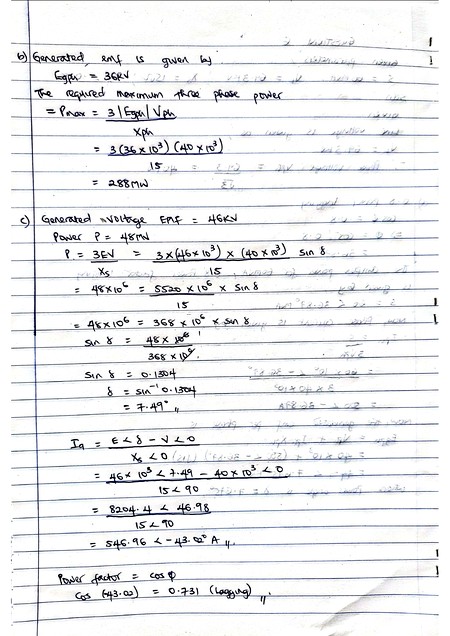 b) Generated emf is given by
Egph = 36KV
The required maximum three phase power
= Pmax = 3|Egph| Vph
Xph
= 3(36 × 10³) (40 × 10³)
15
= 288MW
c) Generated voltage EMF = 46KV
Power P = 48MW
P = 3EV = 3×(46×10³) × (40×10³) sin δ
Xs 15
= 48×10⁶ = 5520 × 10⁶ × sin δ
15
= 48×10⁶ = 368 × 10⁶ × sin δ
sin δ = 48 × 10⁶
368 × 10⁶.
sin δ = 0.1304
δ = sin⁻¹ 0.1304
= 7.49° ,,
Ia = E < δ - V < 0
Xs < 0
= 46 × 10³ < 7.49 - 40 × 10³ < 0
15 < 90
= 8204.4 < 46.98
15 < 90
= 546.96 < -43.02° A ,,
Power factor = cos φ
Cos (-43.02) = 0.731 (Lagging) ,,